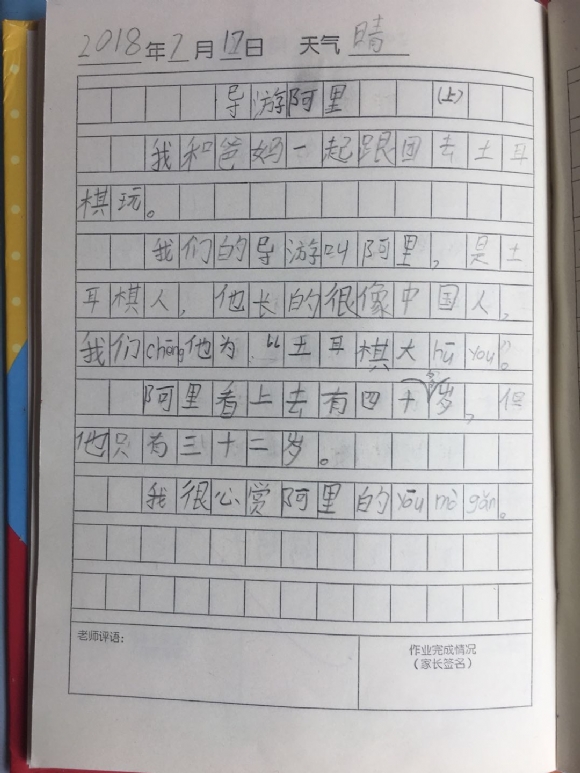 2018年7月17日 天气 晴
导游阿里 (上)
我和爸妈一起跟团去土耳
棋玩。
我们的导游叫阿里,是土
耳棋人,他长的很像中国人,
我们chēng他为“土耳棋大hū you”。
阿里看上去有四十多岁,但
他只有三十二岁。
我很心赏阿里的yōu mò gǎn。
老师评语:
作业完成情况
(家长签名)